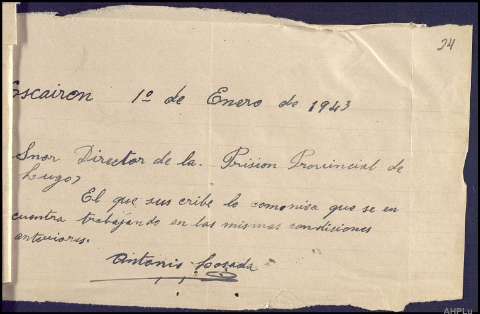 24
Escairon 1º de Enero de 1943
Snor Director de la. Prision Provincial de
Lugo,
El que sus cribe le comonica que se en
cuentra trabajando en las mismas condiciones
anteriores.
Antonio Lozada
AHPLu